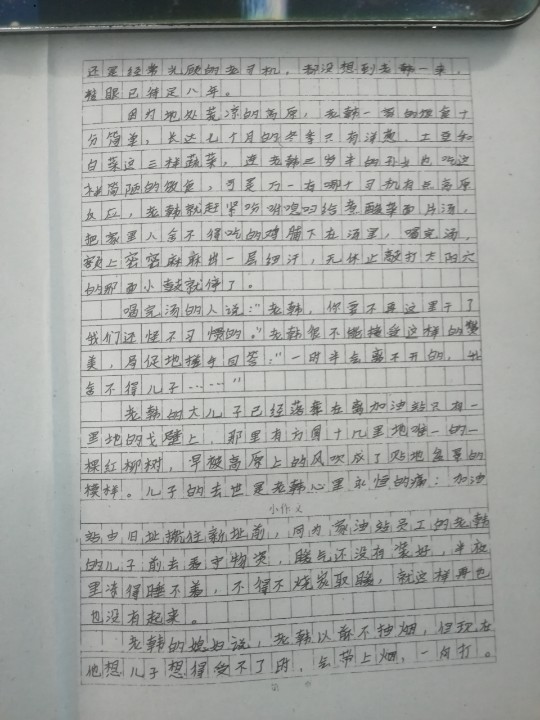 还是经常光顾的老司机，都没想到老韩一来，
转眼已待足八年。
因为地处荒凉的高原，老韩一家的饮食十
分简单，长达七个月的冬季只有洋葱、土豆和
白菜这三样蔬菜，连老韩三岁半的孙子也吃这
种简陋的饭食，可是万一有哪个司机有点高原
反应，老韩就赶紧吩咐媳妇给煮酸菜面片汤，
把家里人舍不得吃的鸡脯下在汤里，喝完汤，
额上密密麻麻出一层细汗，无休止敲打太阳穴
的那面小鼓就停了。
喝完汤的人说：“老韩，你要不在这里干了
我们还怪不习惯的。”老韩似不能接受这样的赞
美，局促地搓手回答：“一时半会离不开的，我
舍不得儿子……”
老韩的大儿子已经落葬在离加油站只有一
里地的戈壁上，那里有方圆十几里地唯一的一
棵红柳树，早被高原上的风吹成了贴地匍匐的
模样。儿子的去世是老韩心里永恒的痛：加油
小作文
站由旧址搬往新址前，同为加油站员工的老韩
的儿子前去看守物资，暖气还没有装好，半夜
里冻得睡不着，不得不烧炭取暖，就这样再也
也没有起来。
老韩的媳妇说，老韩以前不抽烟，但现在
他想儿子想得受不了时，会带上烟、一
打。
第